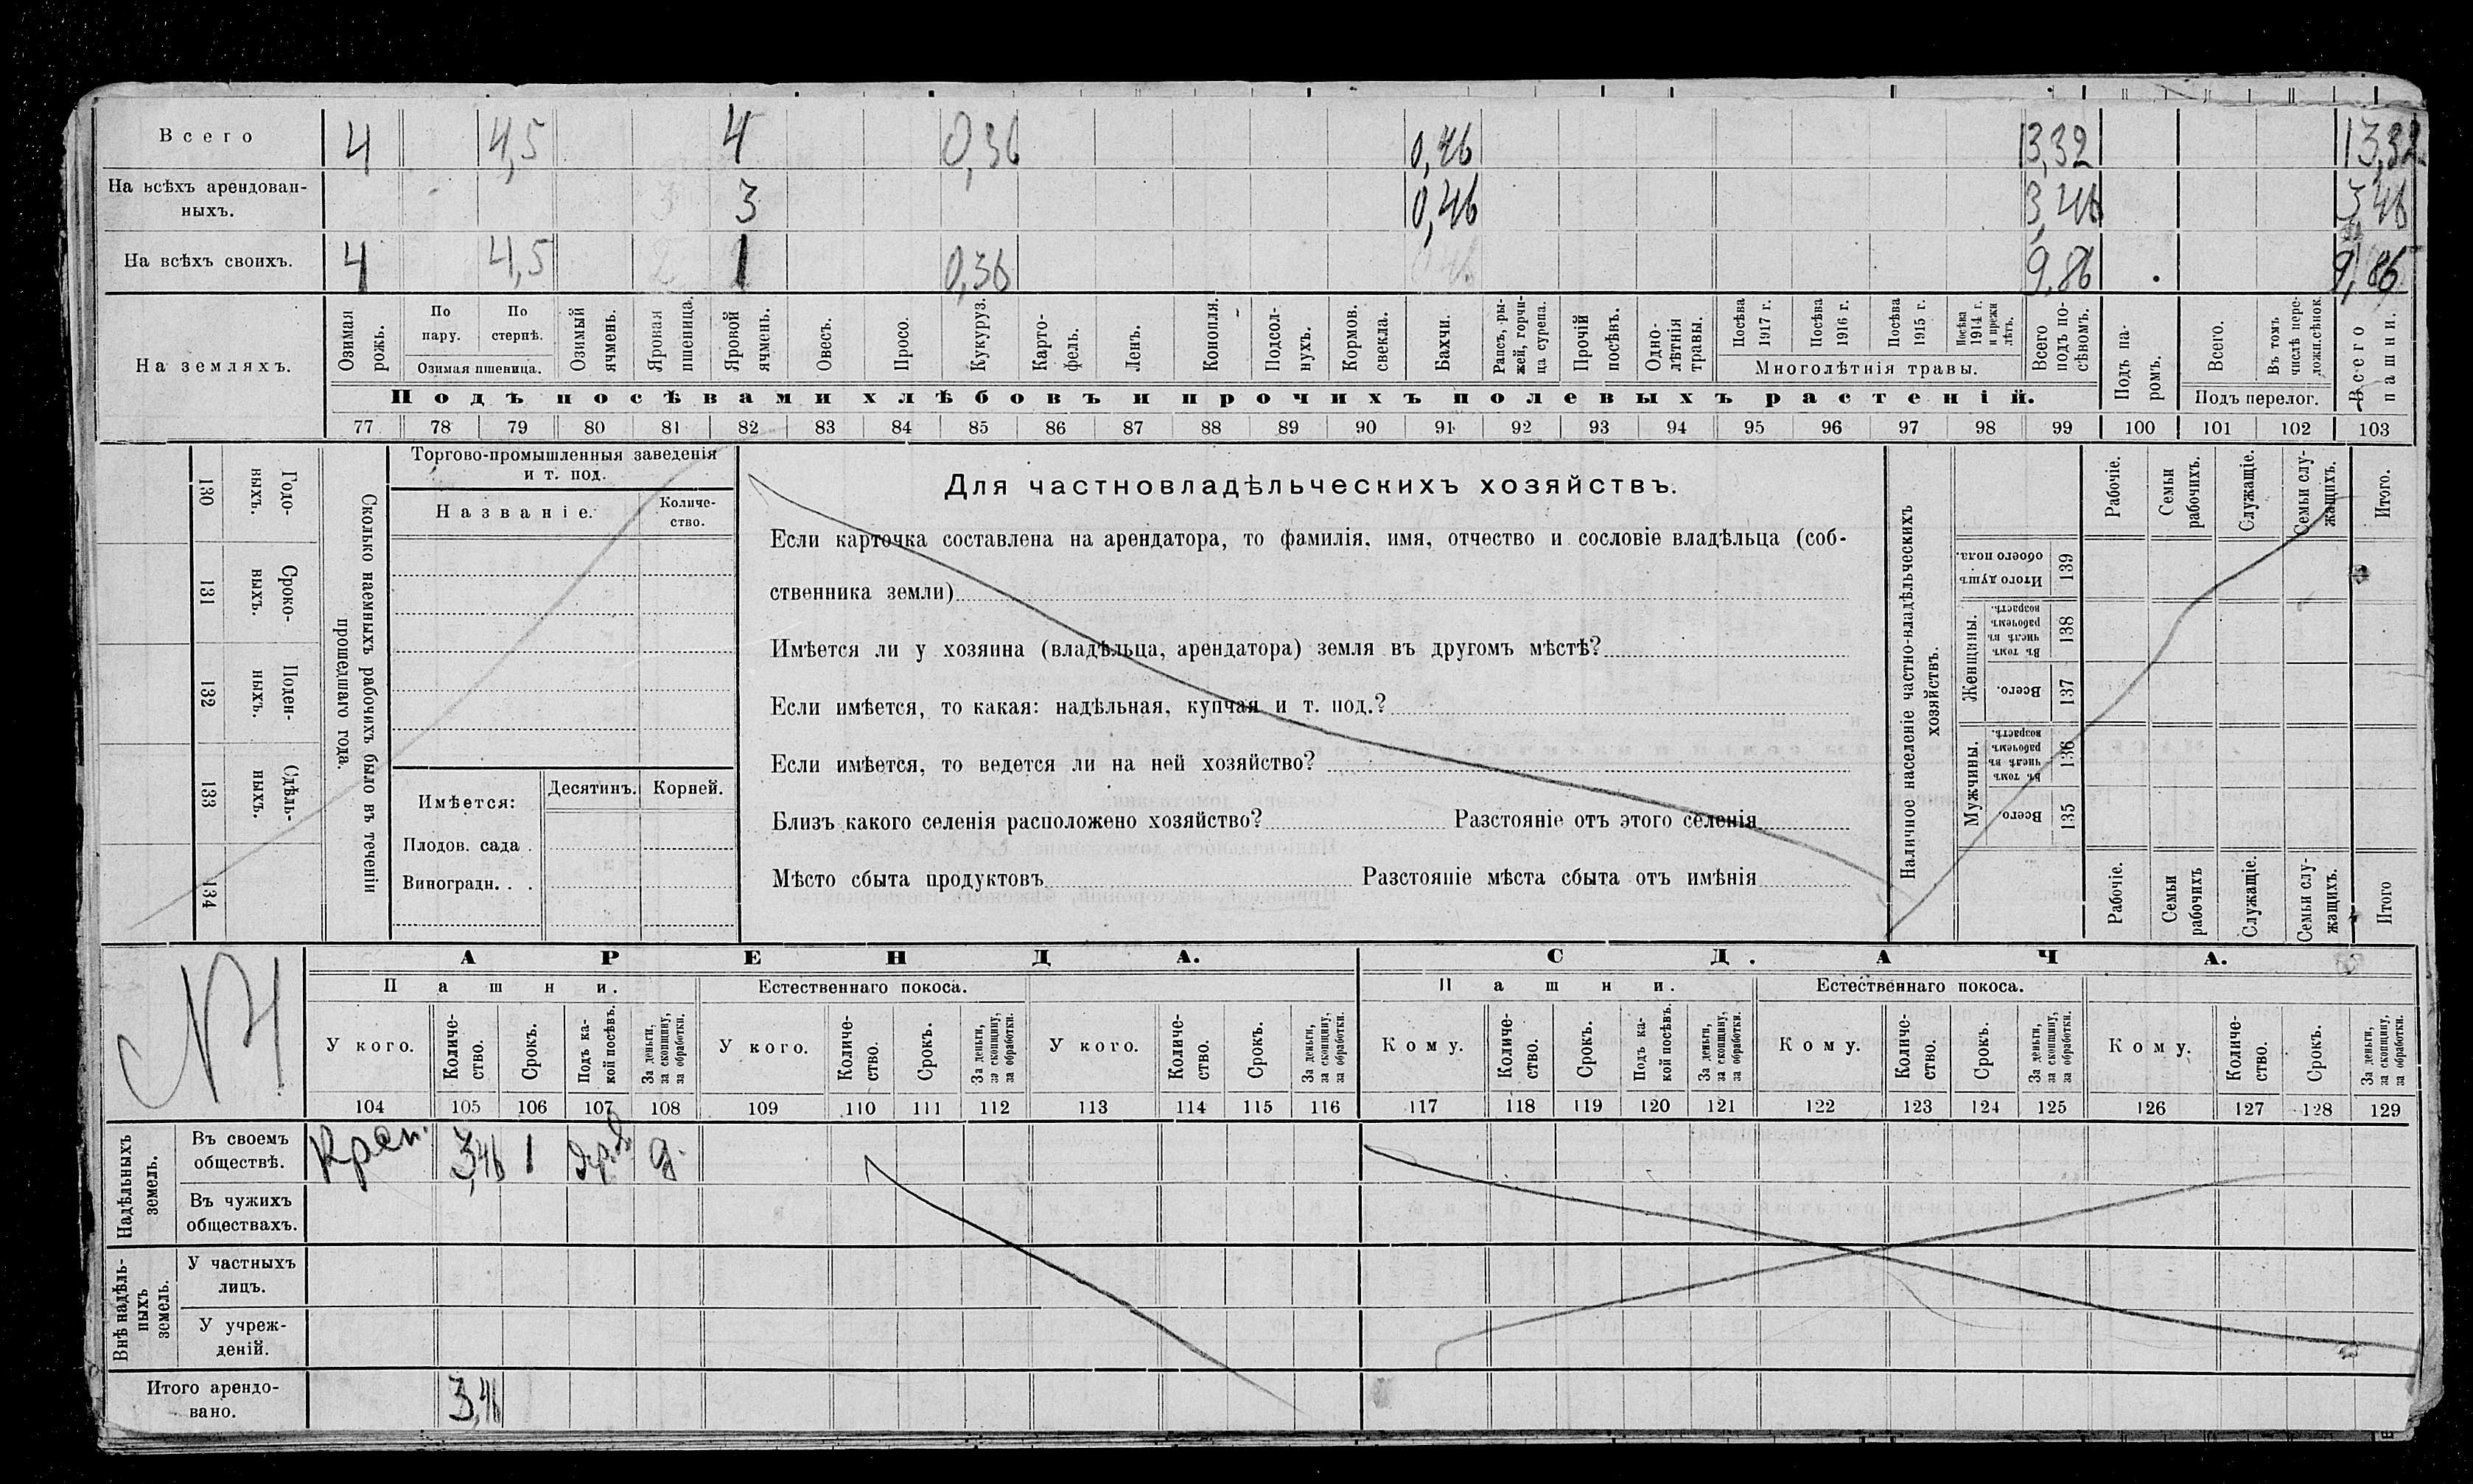 Всего 4 4,5 4 0,36 0,46 13,32 13,32
На всѣхъ арендован-
ныхъ. 3 0,46 3,46 3,46
На всѣхъ своихъ. 4 4,5 1 0,36 9,86 9,86
На земляхъ.
Озимая рожь.
По пару.
По стернѣ.
Озимая пшеница.
Озимый ячмень.
Яровая пшеница.
Яровой ячмень.
Овесъ.
Просо.
Кукуруз.
Карто-
фель.
Ленъ.
Конопля.
Подсол-
нухъ.
Кормов.
свекла.
Бахчи.
Рапсъ, ры-
жей, горчи-
ца сурепа.
Прочій
посѣвъ.
Одно-
лѣтнія
травы.
Посѣва
1917 г.
Посѣва
1916 г.
Посѣва
1915 г.
Посѣва
1914 г.
и прежн
лѣтъ.
Многолѣтнія травы.
Всего
подъ по-
сѣвомъ.
Подъ па-
ромъ.
Всего.
Въ томъ
числѣ перс-
ложн.сѣнок.
Подъ перелог.
Всего
пашни.
Подъ посѣвами хлѣбовъ и прочихъ полевыхъ растеній.
77 78 79 80 81 82 83 84 85 86 87 88 89 90 91 92 93 94 95 96 97 98 99 100 101 102 103
130 Годо-
выхъ.
131 Сроко-
выхъ.
132 Поден-
ныхъ.
133 Сдѣль-
ныхъ.
134
Сколько наемныхъ рабочихъ было въ теченіи
прошедшаго года.
Торгово-промышленныя заведенія
и т. под.
Названіе.
Количе-
ство.
Имѣется:
Десятинъ.
Корней.
Плодов. сада .
Виноградн. . .
Для частновладѣльческихъ хозяйствъ.
Если карточка составлена на арендатора, то фамилія, имя, отчество и сословіе владѣльца (соб-
ственника земли)
Имѣется ли у хозяина (владѣльца, арендатора) земля въ другомъ мѣстѣ?
Если имѣется, то какая: надѣльная, купчая и т. под.?
Если имѣется, то ведется ли на ней хозяйство?
Близъ какого селенія расположено хозяйство? Разстояніе отъ этого селенія
Мѣсто сбыта продуктовъ Разстояніе мѣста сбыта отъ имѣнія
Наличное населеніе частно-владѣльческихъ
хозяйствъ.
Рабочіе.
Семьи
рабочихъ.
Служащіе.
Семьи слу-
жащихъ.
Итого.
Итого душъ
обоего пола.
139
Женщины.
Въ томъ
числѣ въ
рабочемъ
возрастѣ.
138
Всего.
137
Мужчины.
Въ томъ
числѣ въ
рабочемъ
возрастѣ.
136
Всего.
135
Рабочіе.
Семьи
рабочихъ
Служащіе.
Семьи слу-
жащихъ.
Итого
АРЕНДА.
СДАЧА.
Пашни.
Естественнаго покоса.
Пашни.
Естественнаго покоса.
У кого.
Количе-
ство.
Срокъ.
Подъ ка-
кой посѣвъ.
За деньги,
за скопщину,
за обработки.
У кого.
Количе-
ство.
Срокъ.
За деньги,
за скопщину,
за обработки.
У кого.
Количе-
ство.
Срокъ.
За деньги,
за скопщину,
за обработки.
Кому.
Количе-
ство.
Срокъ.
Подъ ка-
кой посѣвъ.
За деньги,
за скопщину,
за обработки.
Кому.
Количе-
ство.
Срокъ.
За деньги,
за скопщину,
за обработки.
Кому.
Количе-
ство.
Срокъ.
За деньги,
за скопщину,
за обработки.
104 105 106 107 108 109 110 111 112 113 114 115 116 117 118 119 120 121 122 123 124 125 126 127 128 129
Надѣльныхъ
земель.
Въ своемъ
обществѣ. 3,46 1 д.
Въ чужихъ
обществахъ.
Внѣ надѣль-
ныхъ
земель.
У частныхъ
лицъ.
У учреж-
деній.
Итого арендо-
вано. 3,46